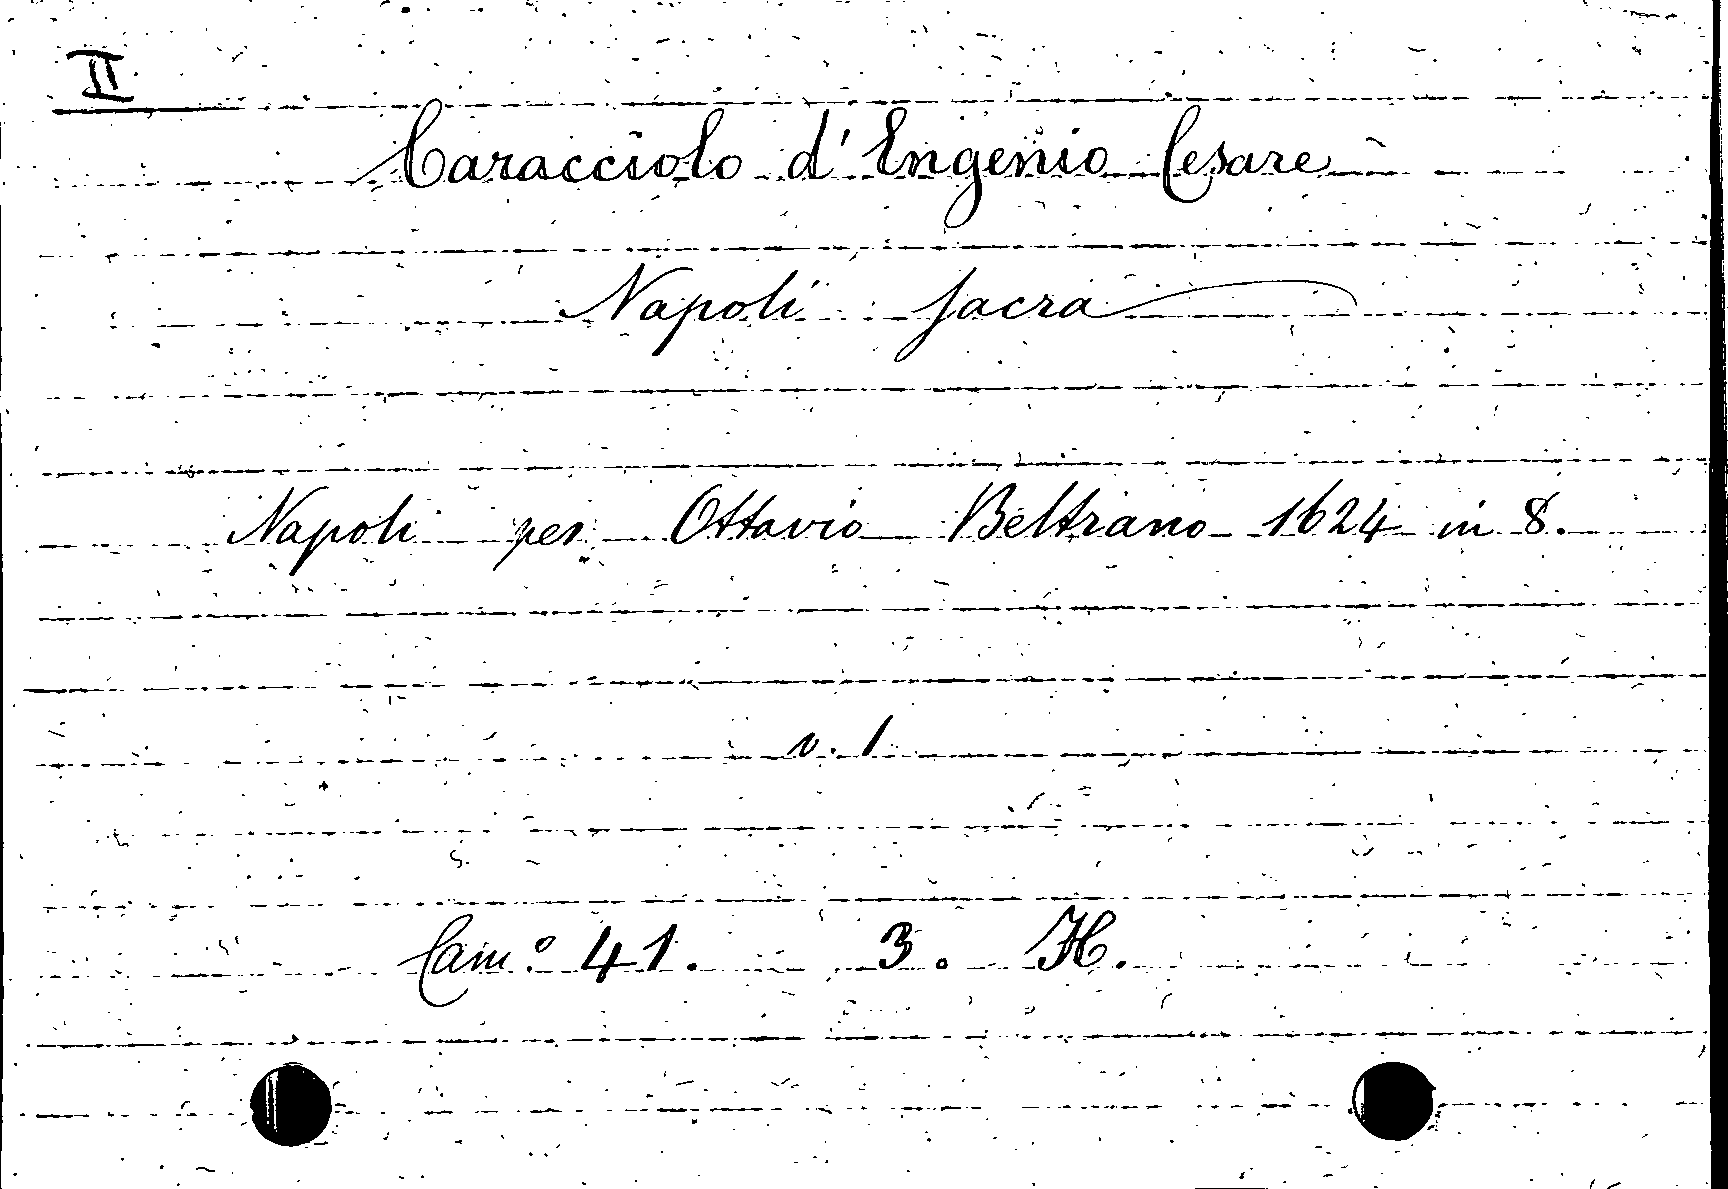 II
Caracciolo d'Engenio Cesare
Napoli sacra
Napoli per Ottavio Beltrano 1624 in 8.
v. 1
Cam.º 41. 3. H.